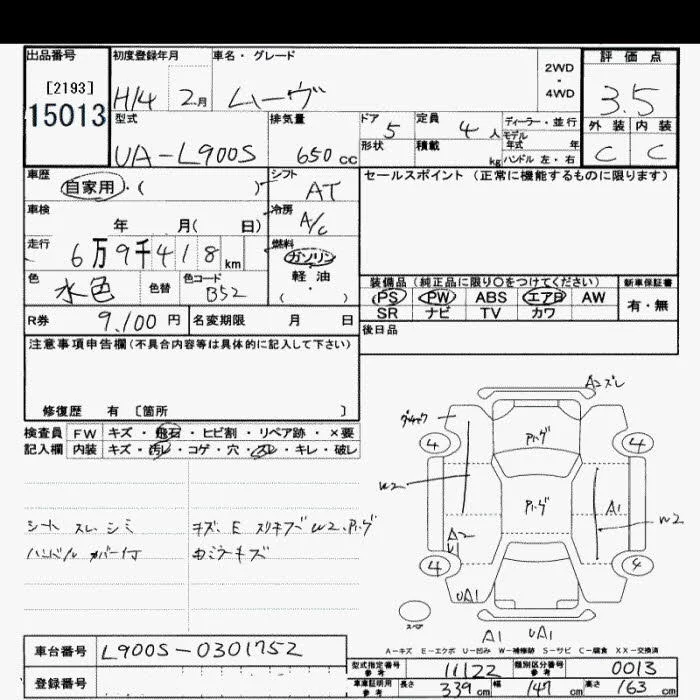 出品番号 初度登録年月 車名・グレード 2WD・4WD 評価点
[2193]
15013
H14 2月 ムーヴ 3.5
型式 排気量 ドア 5 定員 4人 ディーラー・並行 外装 内装
形状 積載 kg モデル年式 年 ハンドル 左・右
UA-L900S 650cc C C
車歴 シフト セールスポイント(正常に機能するものに限ります)
自家用・( ) AT
車検 冷房
年 月( 日) A/C
走行 燃料
6万9千418km ガソリン
色 色替 色コード 軽・油
水色 B52 ・( )
装備品(純正品に限り○をつけてください) 新車保証書
PS PW ABS エアB AW 有・無
SR ナビ TV カワ
R券 9,100円 名変期限 月 日 後日品
注意事項申告欄(不具合内容等は具体的に記入して下さい)
修復歴 有 〔箇所 〕
検査員 FW キズ・飛石・ヒビ割・リペア跡・×要
記入欄 内装 キズ・汚レ・コゲ・穴・スレ・キレ・破レ
シート スレ シミ
ハンドル カバー付
A2スレ
4 4
Pハゲ
W2
Pハゲ
A1
W2
A2
U1
4 4
UA1
スペア
A1 UA1
A-キズ E-エクボ U-凹み W-補修跡 S-サビ C-腐食 XX-交換済
車台番号 L900S-0301752
登録番号
型式指定番号参考 11122 類別区分番号参考 0013
車庫証明用参考 長さ 339cm 幅 147cm 高さ 163cm